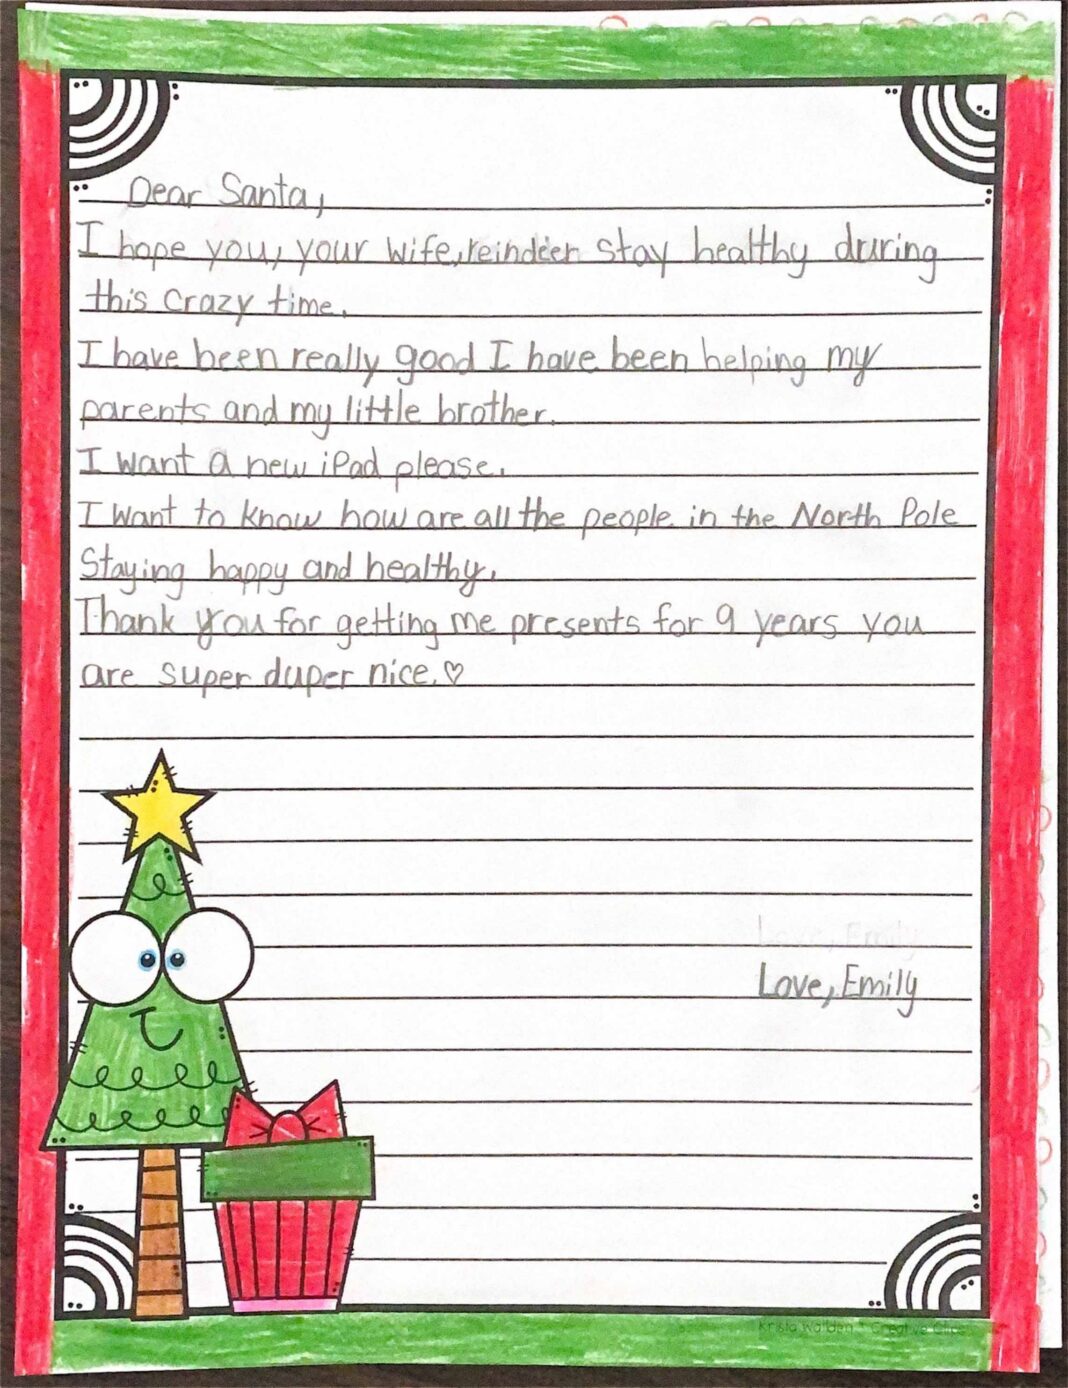 Dear Santa,
I hope you, your wife, reindeer stay healthy during
this crazy time.
I have been really good I have been helping my
parents and my little brother.
I want a new iPad please.
I want to know how are all the people in the North Pole
Staying happy and healthy.
Thank you for getting me presents for 9 years you
are super duper nice.♡
Love, Emily
Love, Emily
Krista Walden Creative